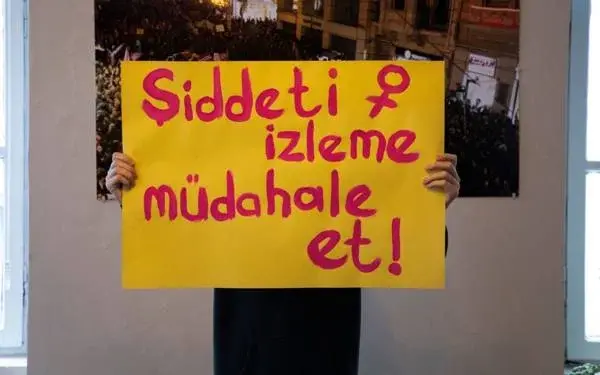 Şiddeti ♀
izleme
müdahale
et!